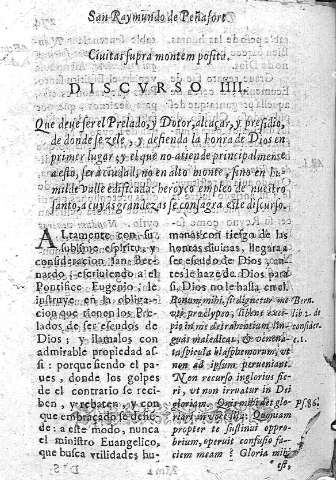 San Raymundo de Peñafort.
Ciuitas supra montem posita.
DISCVRSO IIII.
Que deue ser el Prelado, y Dotor, alcaçar, y presidio,
de donde se zele, y defienda la honra de Dios en
primer lugar; y el que no atiende principalmente
a esto, será ciudad, no en alto monte, sino en hu-
milde valle edificada: heroyco empleo de nuestro
santo, a cuyas grandezas se consagra este discurso.
ALtamente con su
sublime espiritu, y
consideracion san Ber-
nardo, escriuiendo al
Pontifice Eugenio, le
instruye en la obliga-
cion que tienen los Pre-
lados de ser escudos de
Dios; y llamalos con
admirable propiedad as-
si: porque siendo el pa-
ues, donde los golpes
del contrario se reci-
ben, y rebaten, y con
que embraçado se defiẽ-
de: a este modo, nunca
el ministro Euangelico,
que busca vtilidades hu-
manas con riesgo de las
honras diuinas, llegará a
ser escudo de Dios, an-
tes le haze de Dios para
si. Dios no le halla en el.
Bonum mihi, si dignetur me
vti pro clypeo, libens exci-
pio in me detrahentium lin-
guas maledicas, & venena-
ta spicula blasphemorum, vt
non ad ipsum perueniant.
Non recuso inglorius fie-
ri, vt non irruatur in Dei
gloriam. Quis mihi det glo-
riari in voce illa: Quoniam
propter te sustinui oppro-
brium, operuit confusio fa-
ciem meam? Gloria mihi
est,
Ber-
lib. 2. de
considerac.
c. 1.
Ps. 86.